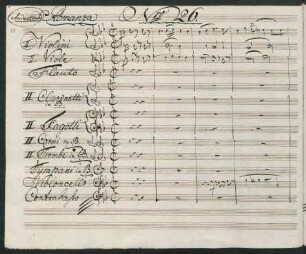 Romanza No. 26
II Violini
2 Viole
Flauto
II Clarinetti
II Fagotti
II Corni in B.
II Trombe in B
Tympani in B
Violoncello
Contrabasso